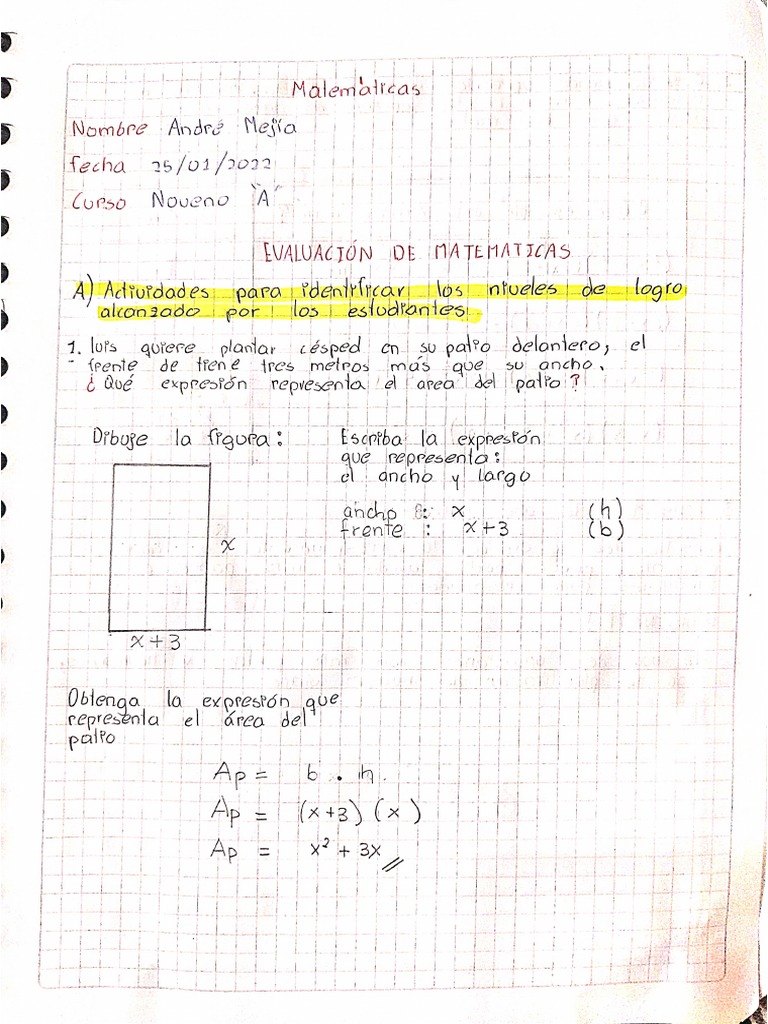 Matemáticas
Nombre André Mejía
fecha 25/01/2022
Curso Noveno "A"
EVALUACIÓN DE MATEMATICAS
A) Actividades para identificar los niveles de logro
alconzado por los estudiantes
1. luis quiere plantar césped en su patio delantero, el
frente de tiene tres metros más que su ancho.
¿Qué expresión representa el area del patio?
Dibuje la figura:
x
x + 3
Escriba la expresión
que representa:
el ancho y largo
ancho : x (h)
frente : x+3 (b)
Obtenga la expresión que
representa el área del
patio
Ap = b . h.
Ap = (x+3) (x)
Ap = x² + 3x //